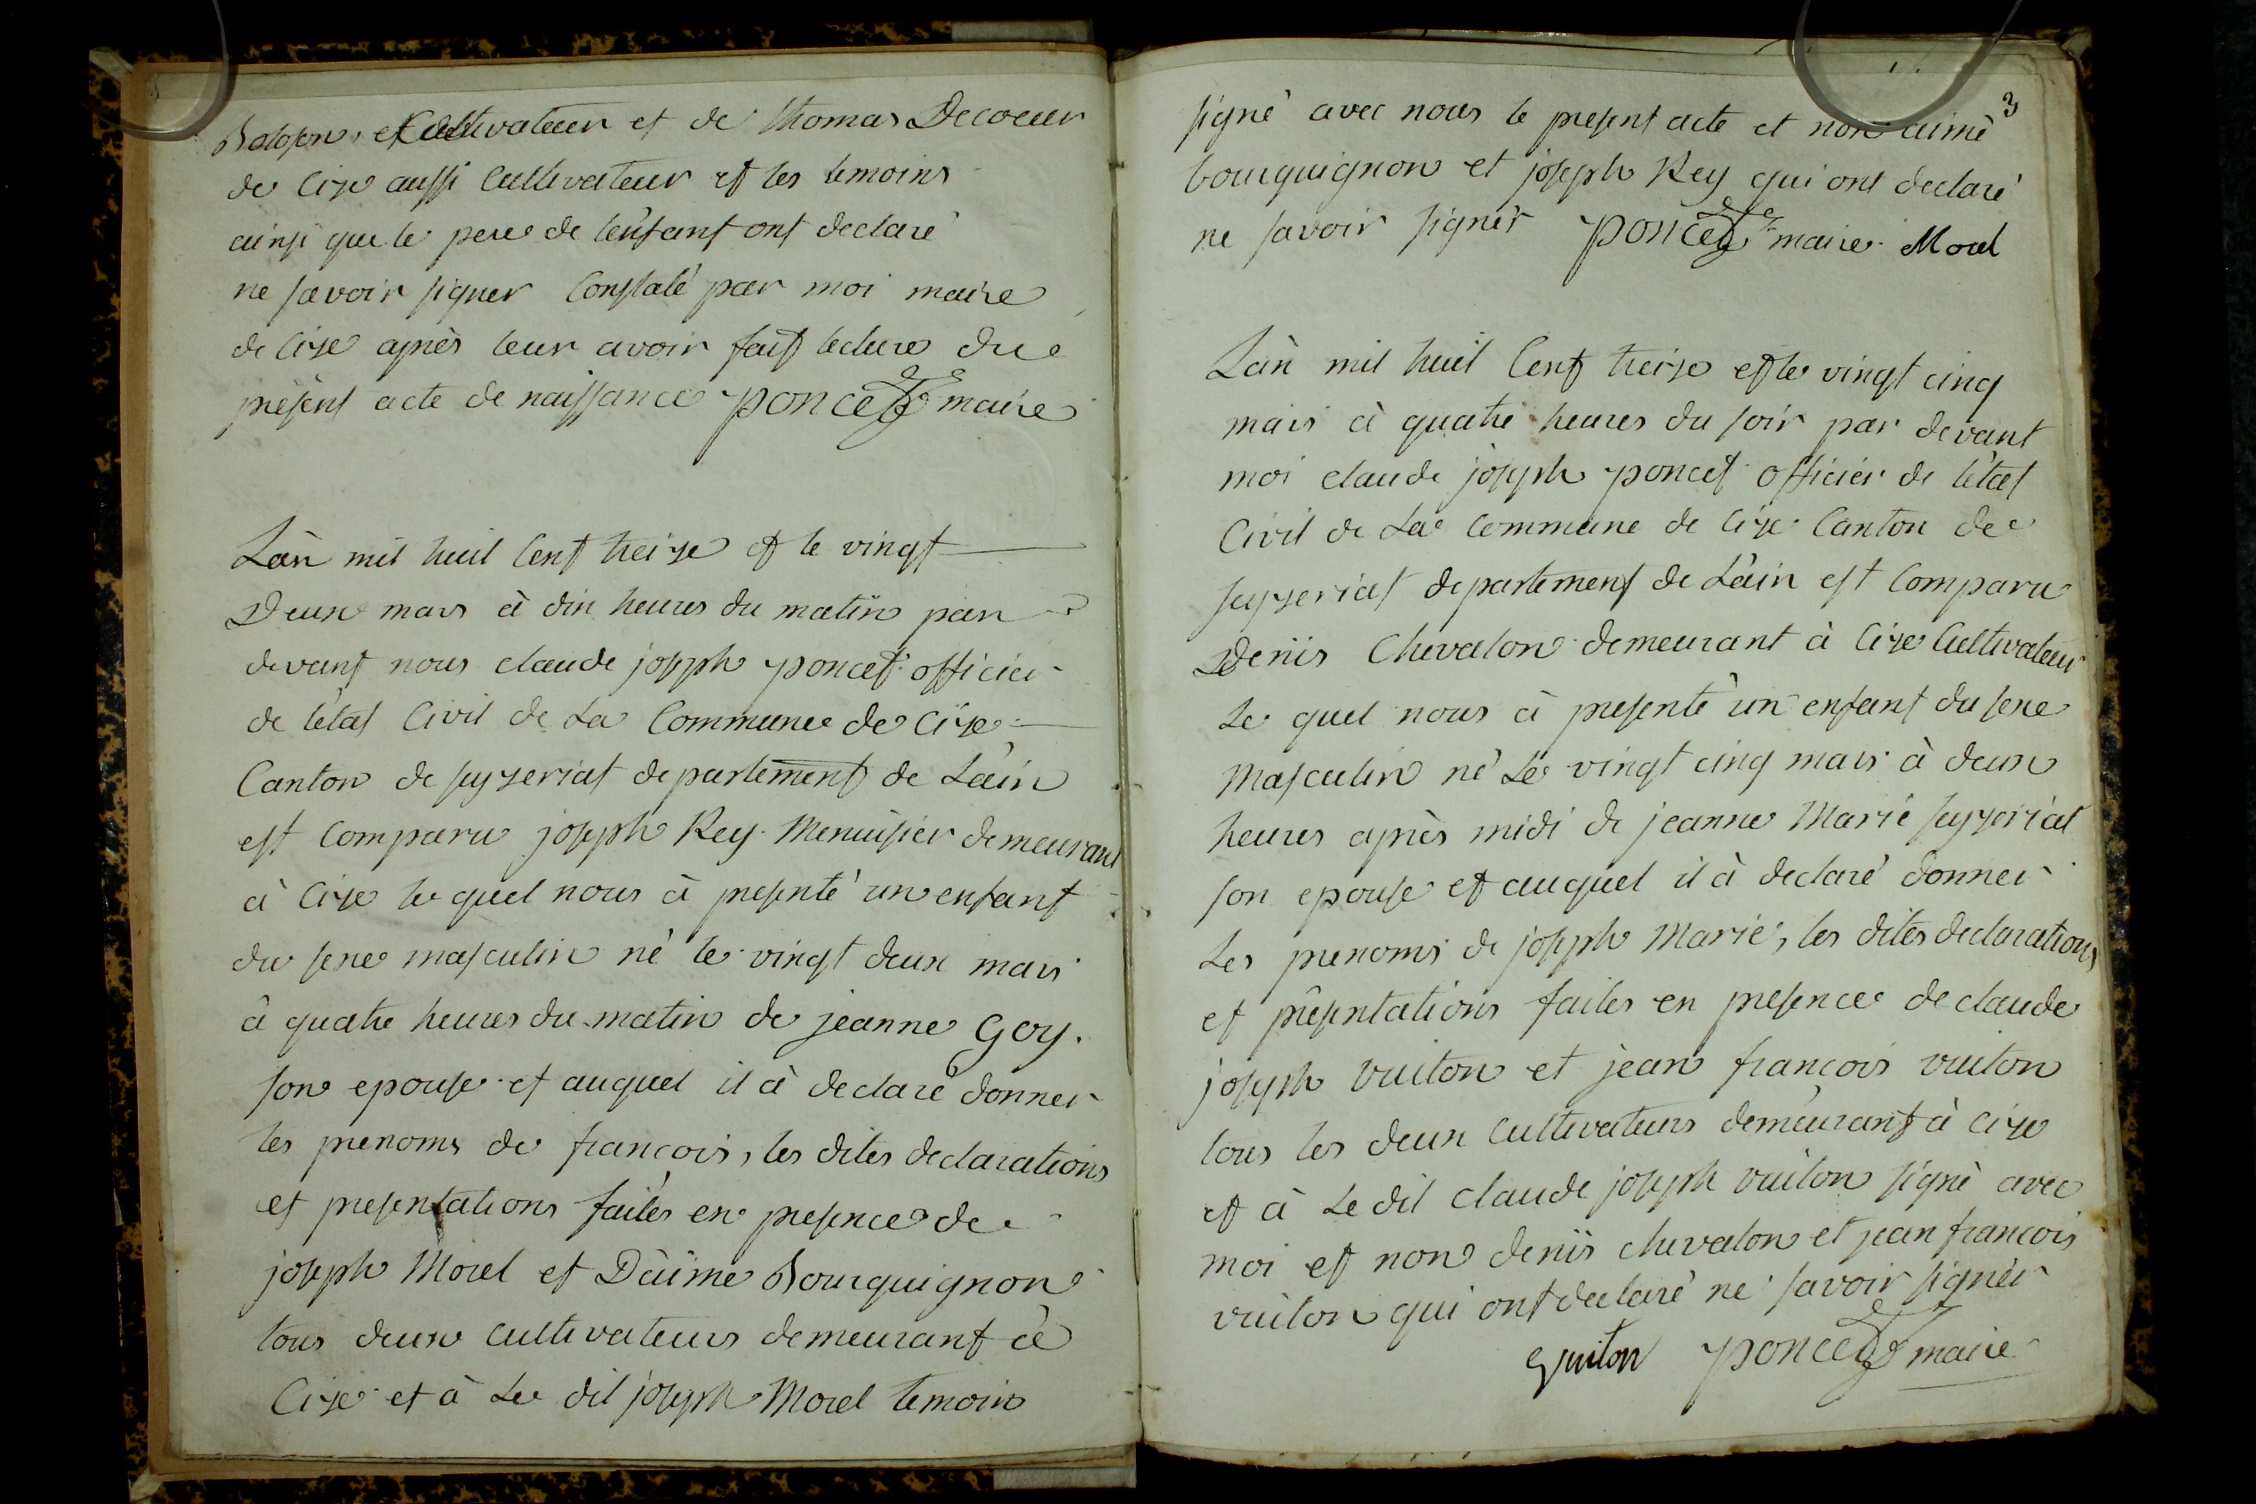 et Cultivateur et de thomas Decoeur
de Cize aussi Cultivateur et les temoins
ainsi que le pere de l'enfant ont declaré
ne savoir signer Constaté par moi maire
de Cize après leur avoir fait lecture du
présent acte de naissance poncet maire
L'àn mil huit Cent treize et le vingt
Deux mars à dix heures du matin par
devant nous claude joseph poncet officier
de l'état Civil de La Commune de Cize
Canton de seyzeriat departement de L'ain
est Comparu joseph Rey Menuisier demeurant
à Cize le quel nous à presenté un enfant
du sexe masculin né le vingt deux mars
à quatre heures du matin de jeanne Goy.
son epouse et auquel il à declaré donner
les prenoms de francois, les dites declarations
et presentations faites en presence de
joseph Morel et D'aimé Bourquignon
tous deux cultivateurs demeurant à
Cize et à Le dit joseph Morel temoin
3
signé avec nous le present acte et non aimé
bourquignon et joseph Rey qui ont declaré
ne savoir signer poncet maire Morel
L'àn mil huit Cent treize et le vingt cinq
mars à quatre heures du soir par devant
moi claude joseph poncet officier de l'état
Civil de La Commune de Cize Canton de
seyzeriat departement de L'ain est Comparu
Denis Chevalon demeurant à Cize Cultivateur
Le quel nous à presenté un enfant du sexe
Masculin né Le vingt cinq mars à deux
heures après midi de jeanne Marie seyzeriat
son epouse et auquel il à declaré donner
Les prenoms de joseph Marie, les dites declarations
et présentations faites en presence de claude
joseph vuiton et jean francois vuiton
tous les deux Cultivateurs demeurant à Cize
et à Le dit claude joseph vuiton signé avec
moi et non denis chevalon et jean francois
vuiton qui ont declaré ne savoir signer
vuiton poncet maire